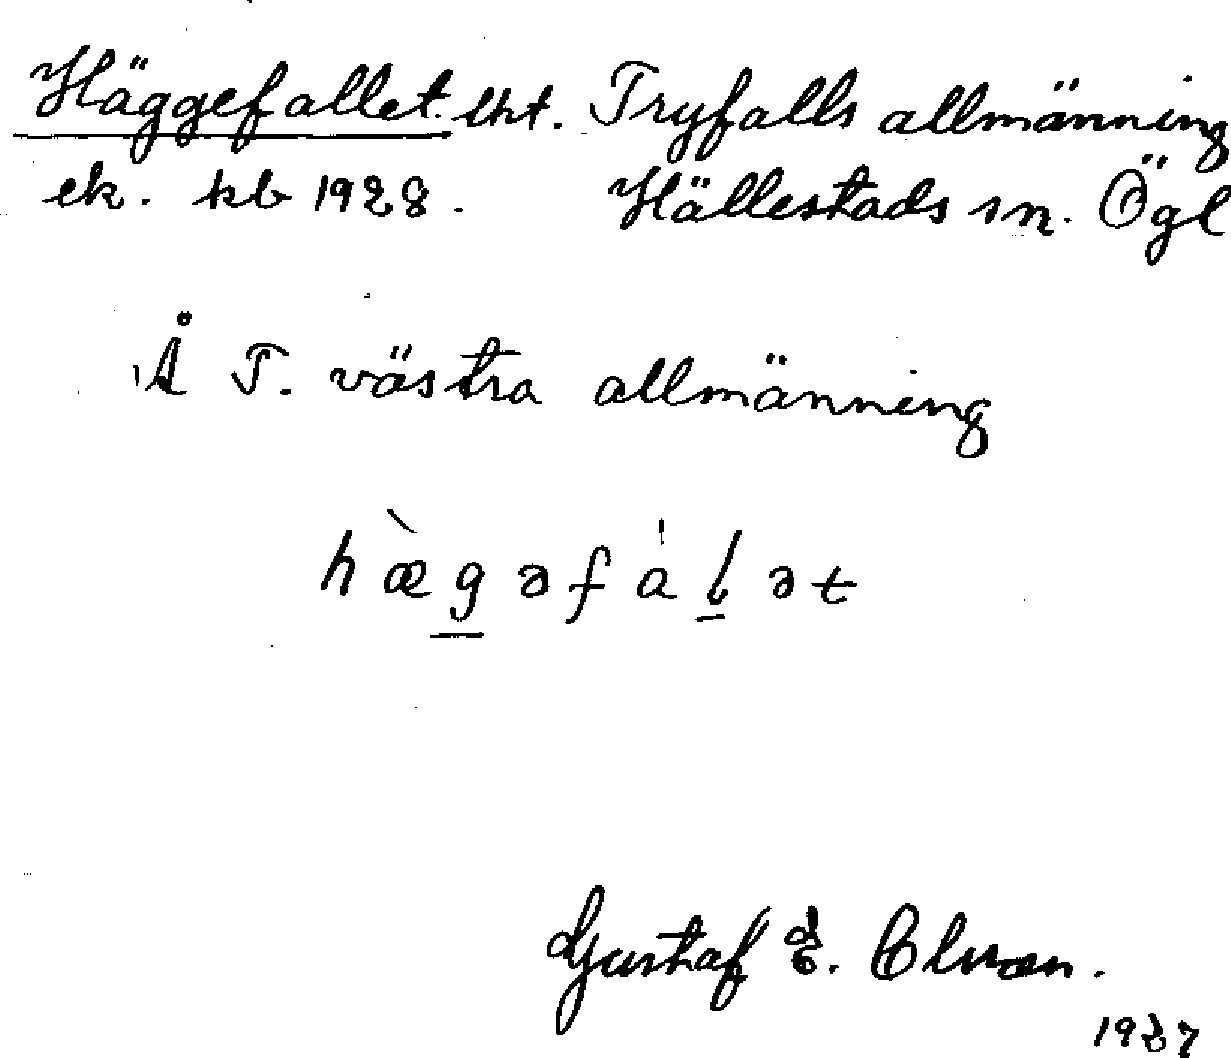 Häggefallet. lht. Tryfalls allmänning
ek. kb 1928. Hällestads sn. Ögl
Å T. västra allmänning
hæ̀g̲əfál̲ət
Gustaf E.